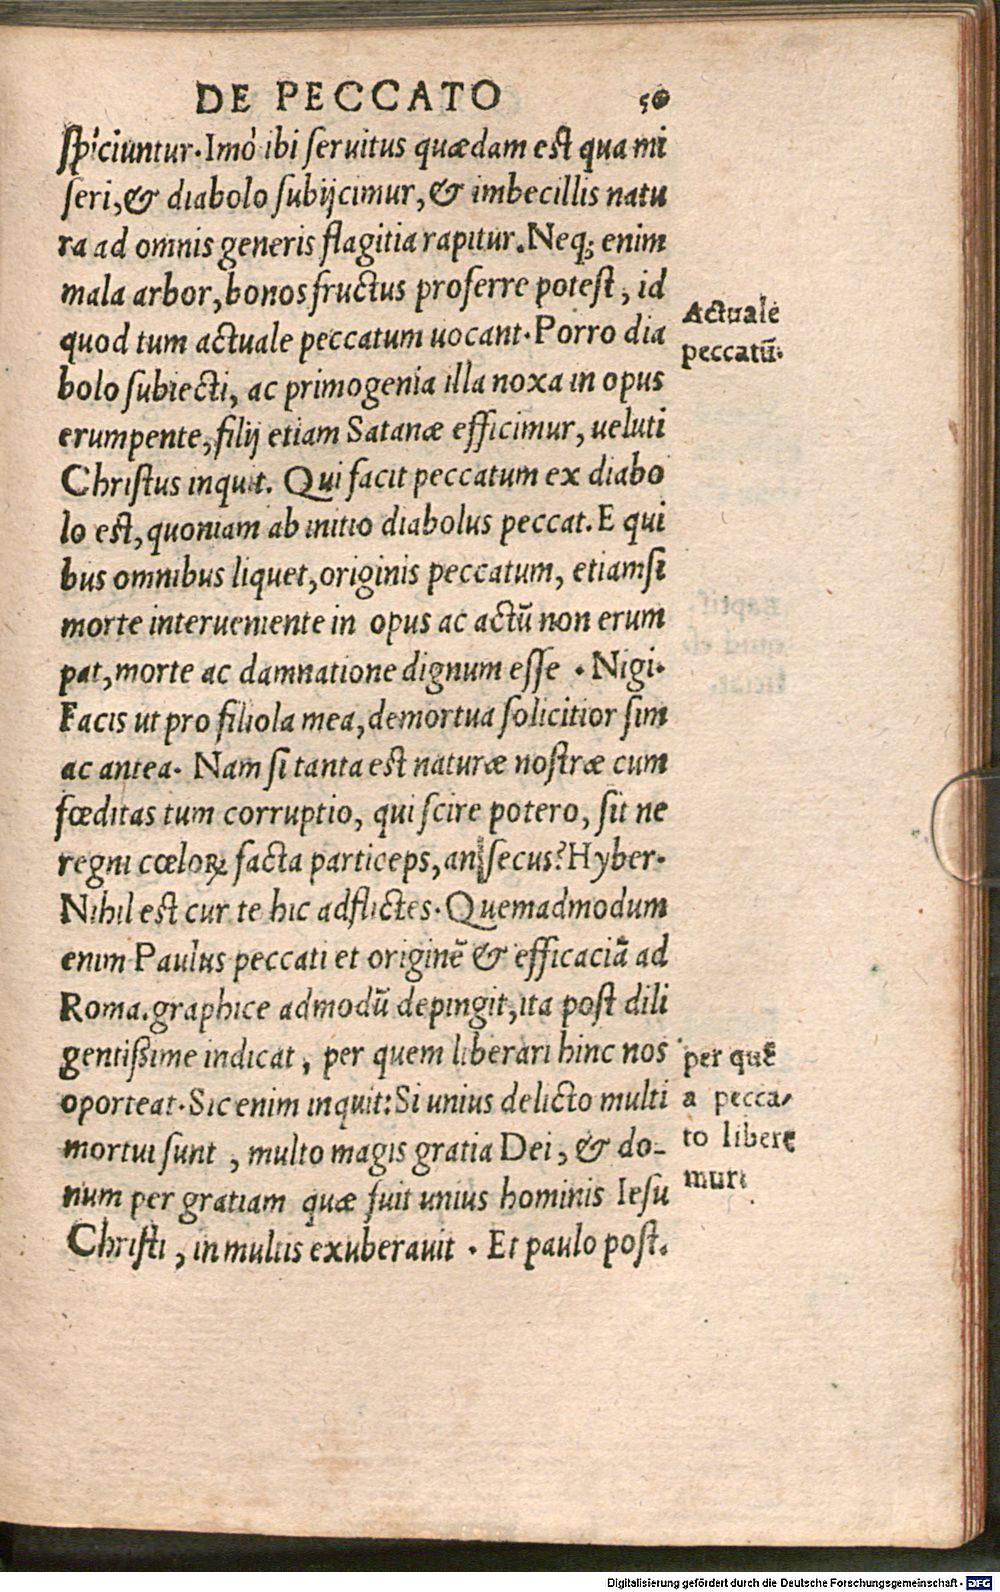 DE PECCATO 50
spiciuntur. Imò ibi seruitus quædam est qua mi
seri, & diabolo subijcimur, & imbecillis natu
ra ad omnis generis flagitia rapitur. Neq; enim
mala arbor, bonos fructus proferre potest, id
quod tum actuale peccatum uocant. Porro dia
Actuale
peccatũ.
bolo subiecti, ac primogenia illa noxa in opus
erumpente, filij etiam Satanæ efficimur, ueluti
Christus inquit. Qui facit peccatum ex diabo
lo est, quoniam ab initio diabolus peccat. E qui
bus omnibus liquet, originis peccatum, etiamsi
morte interueniente in opus ac actũ non erum
pat, morte ac damnatione dignum esse . Nigi.
Facis ut pro filiola mea, demortua solicitior sim
ac antea. Nam si tanta est naturæ nostræ cum
fœditas tum corruptio, qui scire potero, sit ne
regni cœloꝝ facta particeps, an secus? Hyber.
Nihil est cur te hic adflictes. Quemadmodum
enim Paulus peccati et originẽ & efficaciã ad
Roma. graphice admodũ depingit, ita post dili
gentißime indicat, per quem liberari hinc nos
oporteat. Sic enim inquit: Si unius delicto multi
mortui sunt , multo magis gratia Dei, & do-
num per gratiam quæ fuit unius hominis Iesu
Christi , in multis exuberauit . Et paulo post.
per quẽ
a pecca-
to libere
mur:
Digitalisierung gefördert durch die Deutsche Forschungsgemeinschaft - DFG